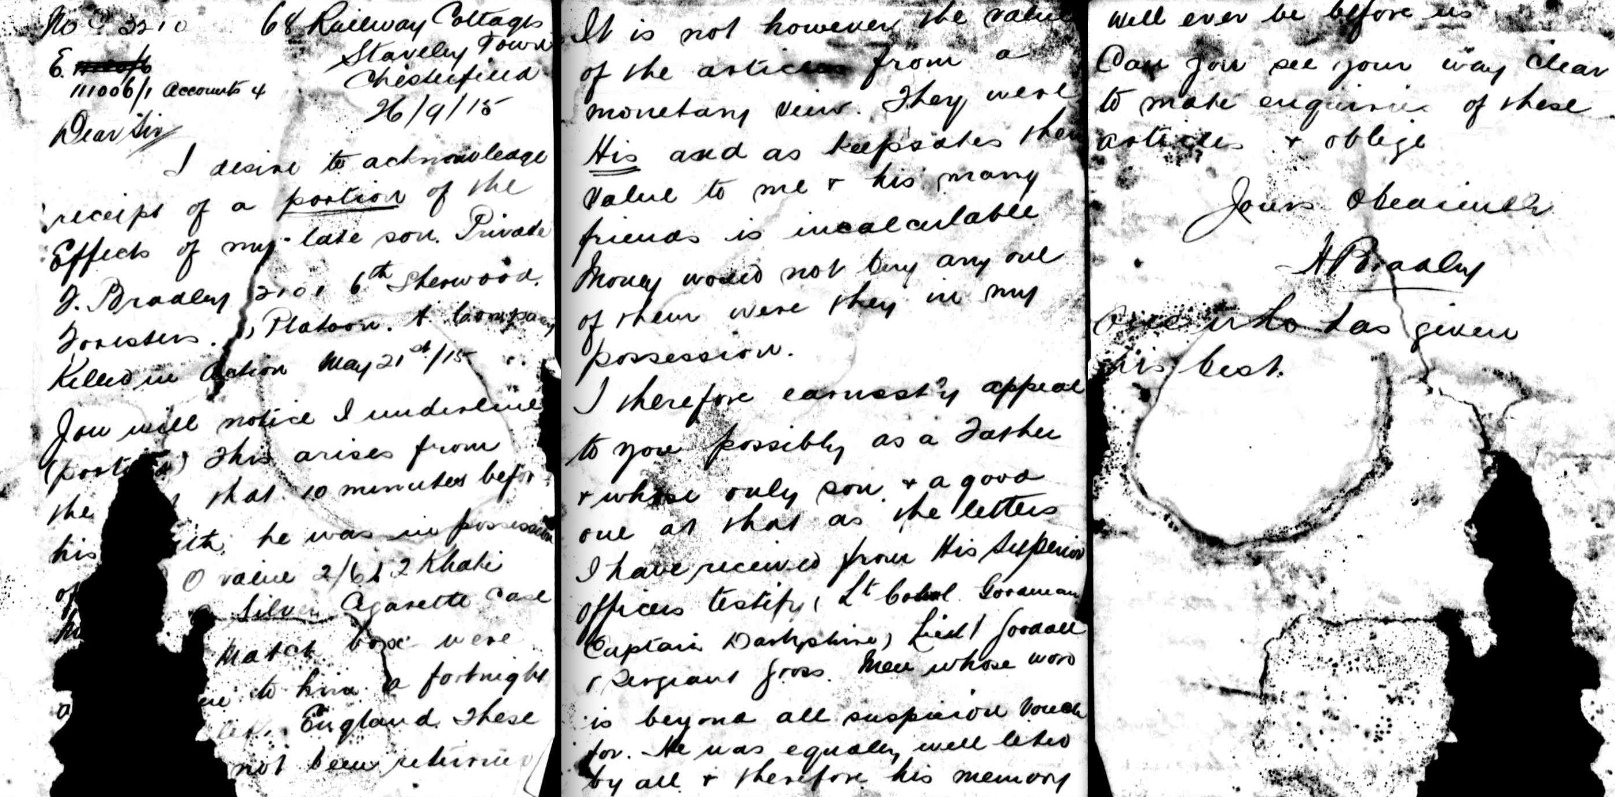 No C 3210
68 Railway Cottages
Staveley Town
Chesterfield
E.
111006/1 Accounts 4
26/9/15
Dear Sir
I desire to acknowledge
receipt of a portion of the
Effects of my late son. Private
J. Bradley 2101 6th Sherwood.
Foresters. Platoon. A Company
Killed in Action May 21st/15
You will notice I underline
(portion) This arises from
the that 10 minutes before
his he was in possession
of value 2/6 & 2 Khaki
Silver Cigarette Case
Match box were
to him a fortnight
England. These
not been returned
It is not however the value
of the articles from a
monetary view. They were
His and as keepsakes their
value to me & his many
friends is incalculable
Money would not buy any one
of them were they in my
possession.
I therefore earnestly appeal
to you possibly as a Father
& whose only son. & a good
one at that as the letters
I have received from His Superior
officers testify (Lt Colonel Goodman
Captain Darbyshire) Lieut Goodall
& Sergeant Gross. Men whose word
is beyond all suspicion vouch
for. He was equally well liked
by all & therefore his memory
will ever be before us
Can you see your way clear
to make enquiries of these
articles & oblige
Yours Obediently
H Bradley
One who has given
his best.